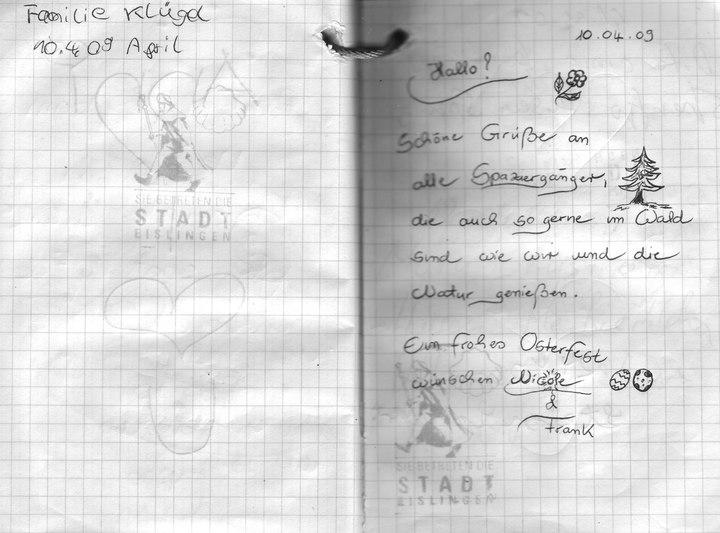 Familie Klügd
10.4.09 April
SIE BETRETEN DIE
STADT
EISLINGEN
10.04.09
Hallo!
Schöne Grüße an
alle Spaziergänger,
die auch so gerne im Wald
sind wie wir und die
Natur genießen.
Ein frohes Osterfest
wünschen Nicole
&
Frank
SIE BETRETEN DIE
STADT
EISLINGEN